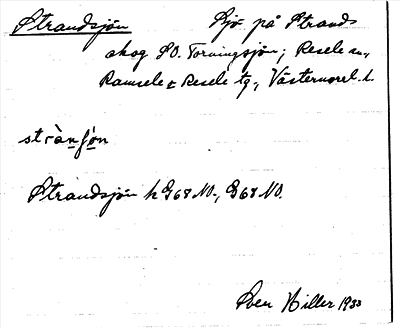 Strandsjön Sjö på Strands
skog SO. Torningsjön; Resele sn,
Ramsele o Resele tg., Västernorrl. l.
strànʃön
Strandsjön k G68 NO., G68 NO.
Sven Hiller 1933